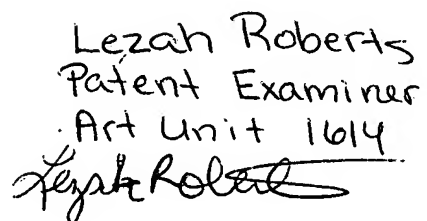 Lezah Roberts
Patent Examiner
Art Unit 1614
Lezah Roberts